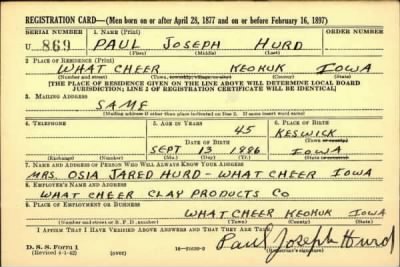 REGISTRATION CARD—(Men born on or after April 28, 1877 and on or before February 16, 1897)
SERIAL NUMBER 1. NAME (Print)
U 869 PAUL JOSEPH HURD
(First) (Middle) (Last)
2. PLACE OF RESIDENCE (Print)
WHAT CHEER KEOKUK IOWA
(Number and street) (Town, township, village, or city) (County) (State)
[THE PLACE OF RESIDENCE GIVEN ON THE LINE ABOVE WILL DETERMINE LOCAL BOARD
JURISDICTION; LINE 2 OF REGISTRATION CERTIFICATE WILL BE IDENTICAL]
3. MAILING ADDRESS
SAME
[Mailing address if other than place indicated on line 2. If same insert word same]
4. TELEPHONE 5. AGE IN YEARS 6. PLACE OF BIRTH
45 KESWICK
DATE OF BIRTH (Town or county)
SEPT 13 1886 IOWA
(Exchange) (Number) (Mo.) (Day) (Yr.) (State or country)
7. NAME AND ADDRESS OF PERSON WHO WILL ALWAYS KNOW YOUR ADDRESS
MRS. OSIA JARED HURD - WHAT CHEER IOWA
8. EMPLOYER'S NAME AND ADDRESS
WHAT CHEER CLAY PRODUCTS CO
9. PLACE OF EMPLOYMENT OR BUSINESS
WHAT CHEER KEOKUK IOWA
(Number and street or R. F. D. number) (Town) (County) (State)
I AFFIRM THAT I HAVE VERIFIED ABOVE ANSWERS AND THAT THEY ARE TRUE.
Paul Joseph Hurd
D. S. S. Form 1
(Revised 4-1-42) (over) (Registrant's signature)